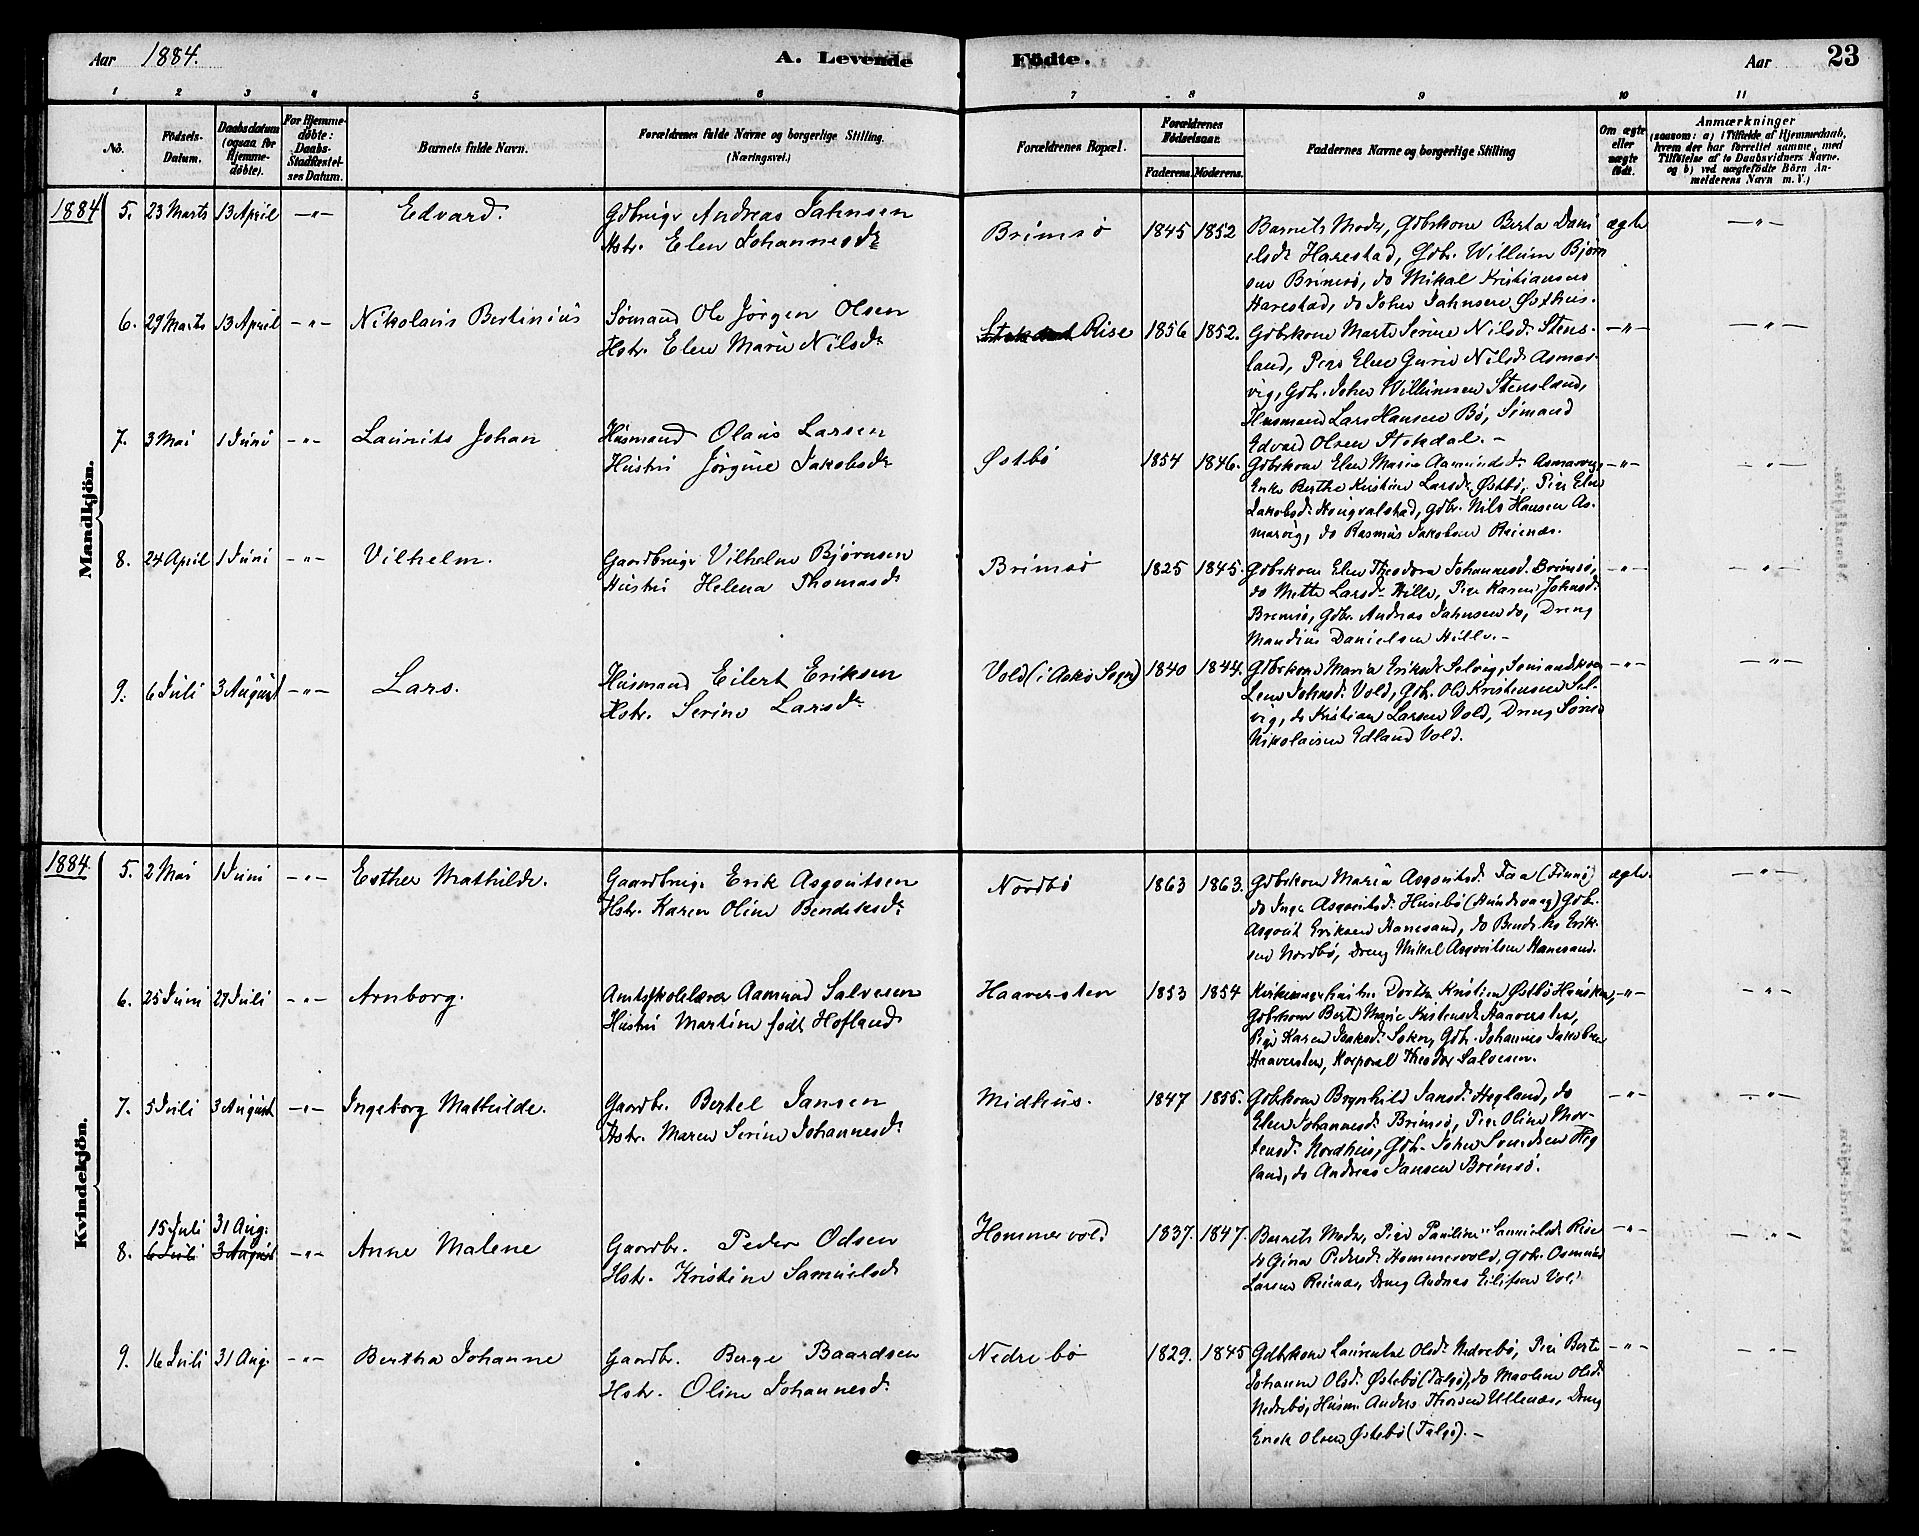 Aar 1884. A. Levende Fødte. Aar 23
1 2 3 4 5 6 7 8 9 10 11
No. Födsels-Datum. Daabsdatum (ogsaa for Hjemmedöbte). For Hjemmedöbte: Daabs-Stadfæstelses Datum. Barnets fulde Navn. Forældrenes fulde Navne og borgerlige Stilling. (Næringsvei.) Forældrenes Bopæl. Forældrenes Födselsaar. Faderens. Moderens. Faddernes Navne og borgerlige Stilling Om ægte eller uægte födt. Anmærkninger
(saasom: a) i Tilfælde af Hjemmedaab, hvem der har forrettet samme, med Tilföielse af to Daabsvidners Navne. og b) ved uægtefödte Börn Anmelderens Navn m. V.)
Mandkjön.
1884 5. 23 Marts 13 April -"- Edvard. Gdbrugr Andreas Jahnsen
Hstr. Elen Johannesdr
Brimsø 1845 1852 Barnets Moder, Gdbrkone Berta Dani
elsdr Harestad, Gdbr. Willum Bjørn
sen Brimsø, do Mikal Kristiansen
Harestad, do John Jahnsen Østhus. ægte -"-
6. 29 Marts 13 April -"- Nikolais Bertinius Sømand Ole Jørgen Olsen
Hstr. Elen Marie Nilsdr
Rise 1856 1852. Gdbrkone Marte Serine Nilsdr Stens-
land, Pige Elen Gurie Nilsdr Asmar-
vig, Gdbr. John Willumsen Stensland,
Husmand Lars Hansen Bø, Sømand
Edvard Olsen Stokdal. - -"- -"-
7. 3 Mai 1 Juni -"- Laurits Johan Husmand Olaus Larsen
Hustru Jørgine Jakobsdr
Østbø 1854 1846. Gdbrkone Elen Marie Aamundsdr Asmarvig,
Enke Berthe Kristine Larsdr Østbø, Pige Elen
Jakobsdr Hougvalstad, Gdbr. Nils Hansen As-
marvig, do Rasmus Jakobsen Reienæs. -"- -"-
8. 24 April 1 Juni -"- Vilhelm. Gaardbrugr Vilhelm Bjørnsen
Hustru Helena Thomasdr
Brimsø 1825 1845. Gdbrkone Elen Theodora Johannesdr. Brimsø,
do Mette Larsdr Hille, Pige Karen Johnsdr
Brimsø, Gdbr. Andreas Jahnsen do, Dreng
Mandius Danielsen Hille. - -"- -"-
9. 6 Juli 3 August -"- Lars. Husmand Eilert Eriksen
Hstr. Serine Larsdr
Vold (i Askø Sogn) 1840 1844. Gdbrkone Maria Eriksdr Selvig, Sømandskone
Lene Johnsdr Vold, Gdbr. Ole Kristensen Sel-
vig, do Kristian Larsen Vold, Dreng Søren
Nikolaisen Edland Vold. -"- -"-
Kvindekjön.
1884. 5. 2 Mai 1 Juni -"- Esther Mathilde. Gaardbrugr Erik Asgoutsen
Hstr. Karen Oline Bendiksdr
Nordbø 1863 1863. Gdbrkone Maria Asgoutsdr Faa (Finnø)
do Inga Asgoutsdr Husebø (Hundsvaag) Gdbr.
Asgout Eriksen Hanesand, do Bendiks Erik-
sen Nordbø, Dreng Mikkal Asgoutsen Hanesand. ægte. -"-
6. 25 Juni 27 Juli -"- Arnborg. Amtsskolelærer Aamund Salvesen
Hustru Martine født Hofland
Haaversten 1853 1854 Dorthe Kristine Østbø Hausken,
Gdbrkone Berte Marie Kristensdr Haaversten,
Pige Karen Isaksdr Sokn, Gdbr. Johannes Jakobsen
Haaversten, Korporal Theodor Salvesen. -"- -"-
7. 5 Juli 3 August -"- Ingeborg Mathilde. Gaardbr. Bertel Jansen
Hstr. Maren Serine Johannesdr
Midhus. 1847 1855. Gdbrkone Brynhild Jansdr Hegland, do
Elen Johannesdr Brimsø, Pige Oline Mor-
tensdr Nordhus, Gdbr. John Svendsen Heg
land, do Andreas Jansen Brimsø. -"- -"-
8. 15 Juli 31 Aug. 6 Juli 3 August -"- Anne Malene Gaardbr. Peder Odsen
Hstr. Kristine Samuelsdr
Hommervold 1837. 1847. Barnets Moder, Pige Pauline Samuelsdr Rise
do Gina Pedersdr Hommersvold, Gdbr. Osmund
Larsen Reienæs, Dreng Andreas Eilifsen Vold -"- -"-
9. 16 Juli 31 Aug. -"- Bertha Johanne Gaardbr. Berge Baardsen
Hstr. Oline Johannesdr
Nedrebø 1829. 1845 Gdbrkone Laurentse Olsdr Nedrebø, Pige Berte
Johanne Olsdr Østebø (Talgø), do Maolene Olsdr
Nedrebø, Husm. Anders Thorsen Ullenæs, Dreng
Enok Olsen Østebø (Talgø). - -"- -"-